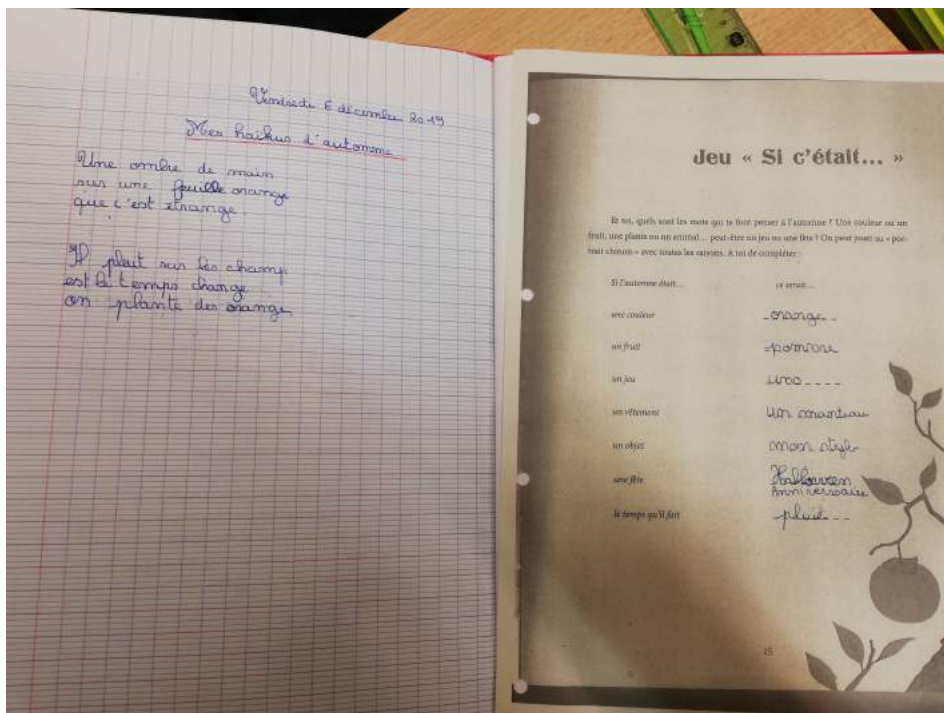 Vendredi 6 décembre 2019
Mes haïkus d'automne
Une ombre de main
sur une feuille orange
que c'est étrange.
Il pleut sur les champ
est le temps change
on plante des orange
Jeu « Si c'était... »
Et toi, quels sont les mots qui te font penser à l'automne ? Une couleur ou un
fruit, une plante ou un animal... peut-être un jeu ou une fête ? On peut jouer au « por-
trait chinois » avec toutes les saisons. A toi de compléter :
Si l'automne était... ce serait...
une couleur orange
un fruit pomme
un jeu uno
un vêtement un manteau
un objet mon stylo
une fête Halloween
Anniversaire
le temps qu'il fait pluit
15